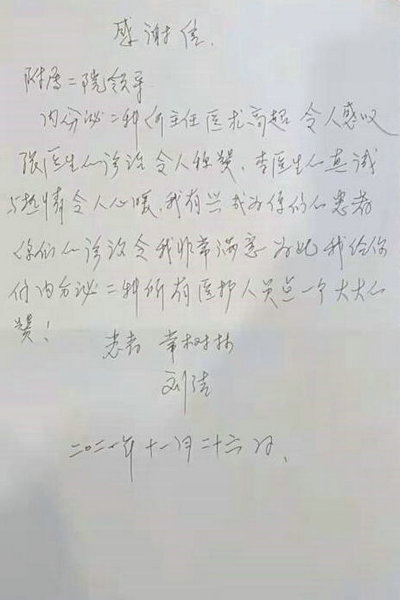 感谢信.
附属二院领导
内分泌二科何主任医术高超 令人感叹
张医生的诊治令人称赞.李医生的真诚
与热情令人心暖.我有兴成为你们的患者
你们的诊治令我非常满意 为此我给你
们内分泌二科所有医护人员点一个大大的
赞!
患者 常树林
刘佳
二〇二一年十一月二十六日.